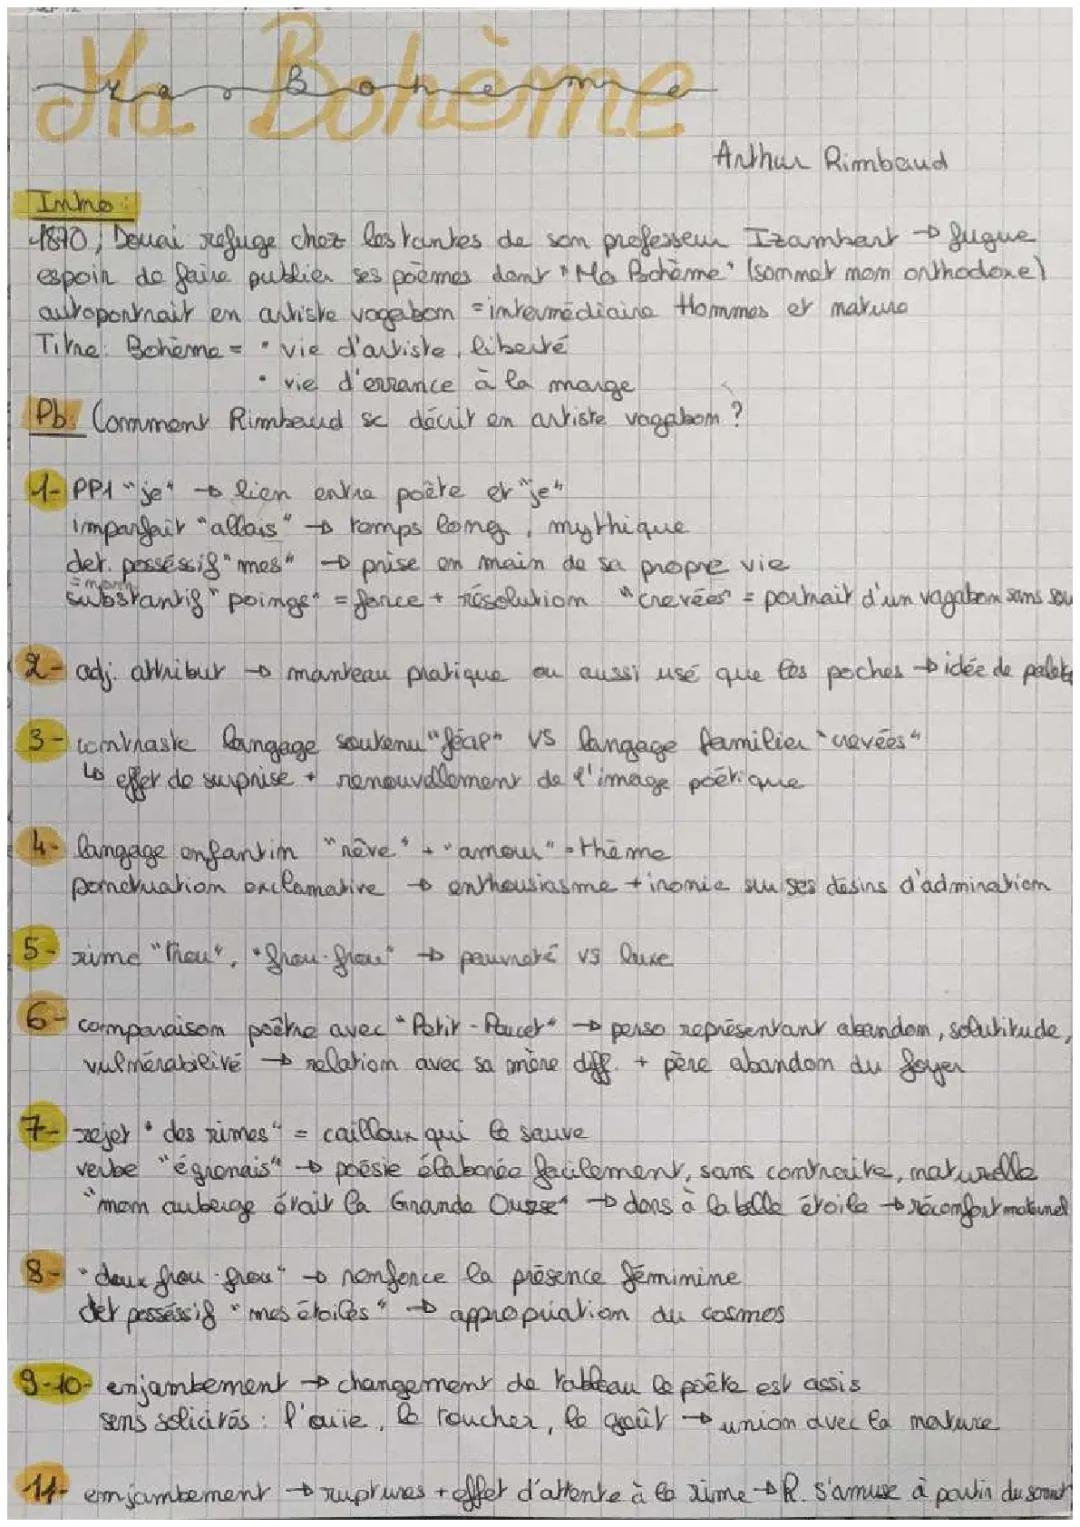 Ma Bohème
Ma Bohème
Arthur Rimbaud
Intro :
1870, Douai refuge chez les tantes de son professeur Izambart → fugue
espoir de faire publier ses poèmes dont "Ma Bohème" (sonnet non orthodoxe)
autoportrait en artiste vagabon = intermédiaire Hommes et nature
Titre: Bohème = • vie d'artiste, liberté
• vie d'errance à la marge
Pb: Comment Rimbaud se décrit en artiste vagabon ?
1- PP1 "je" → lien entre poète et "je"
imparfait "allais" → temps long, mythique
det. possessif "mes" → prise en main de sa propre vie
= main
substantif "poings" = force + résolution "crevées" = portrait d'un vagabon sans sou
2- adj. attribut → manteau pratique ou aussi usé que les poches → idée de
3- contraste langage soutenu "féal" VS langage familier "crevées"
↳ effet de surprise + renouvellement de l'image poétique
4- langage enfantin "rêve" + "amour" = thème
ponctuation exclamative → enthousiasme + ironie sur ses désirs d'admiration
5- rime "trou", "frou-frou" → pauvreté vs luxe
6- comparaison poètre avec "Petit-Poucet" → perso représentant abandon, solutitude,
vulnérabilité → relation avec sa mère diff. + père abandon du foyer
7- rejet "des rimes" = cailloux qui le sauve
verbe "égrenais" → poésie élaborée facilement, sans contraite, naturelle
"mon auberge était la Grande Ourse" → dors à la belle étoile → réconfort maternel
8- "doux frou-frou" → renforce la présence féminine
det possessif "mes étoiles" → appropriation du cosmos
9-10- enjambement → changement de tableau le poète est assis
sens solicités : l'ouïe, le toucher, le goût → union avec la nature
11- enjambement → ruptures + effet d'attente à la rime → R. s'amuse à partir du sonnet